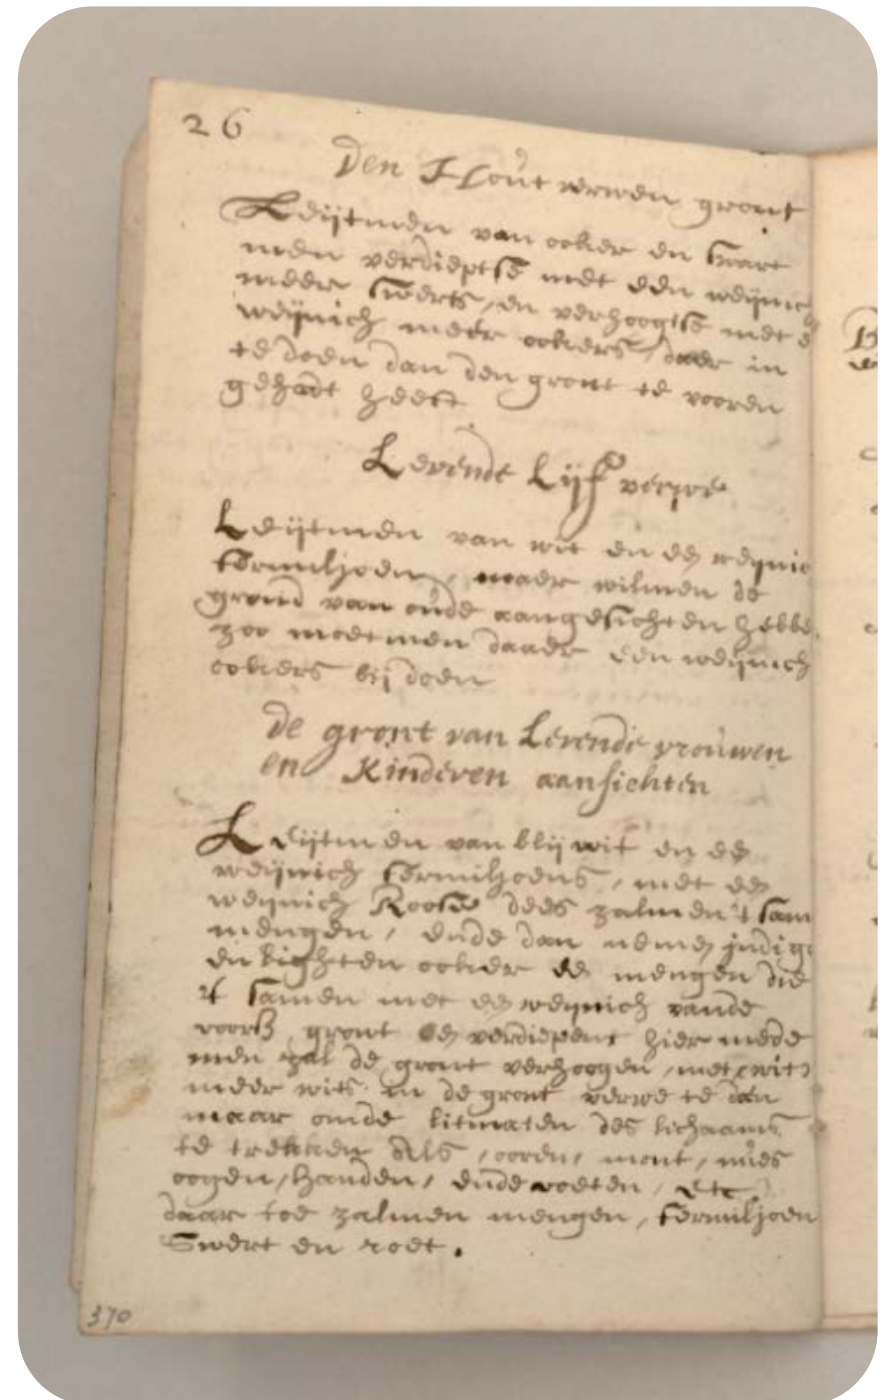 26
Den Hout verwen gront
Leijtmen van ooker en swart
men verdieptse met een weijnich
meer swerts, en verhoogtse met e
weijnich meer ookers, daer in
te doen dan den gront te vooren
gehadt heeft
Levende Lijf verwe
Leijtmen van wit en ee weijnic
fermiljoen, maer wilmen de
grond van oude aangesichten hebbe
zoo moetmen daader een weijnich
ookers bij doen
De gront van Levende vrouwen
en Kinderen aansichten
Leijtmen van blij wit en ee
weijnich fermiljoens, met ee
weijnich dees zalmen 't sam
mengen, ende dan nemen indigo
en lighten ooker mengen die
't samen met ee weijnich vande
voors gront verdiepent hier mede
men zal de gront verhoogen, met wit
meer wits in de gront verwe te dan
maar omde litmaten des lichaams
te trekken Als, ooren, mont, nues
oogen, handen, ende voeten, etc
daar toe zalmen mengen, fermiljoen
Swert en roet.
370